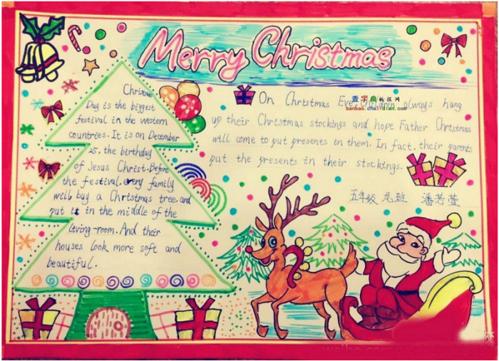 Merry Christmas
Christmas
Day is the biggest
festival in the western
countries. It is on December
25, the birthday
of Jesus Christ. Before
the festival, every family
will buy a Christmas tree, and
put it in the middle of the
living-room. And their
houses look more soft and
beautiful.
On Christmas Eve, children always hang
up their Christmas stockings and hope Father Christmas
will come to put presents in them. In fact, their parents
put the presents in their stockings.
五年级 班 潘芳莹
查字典 教程网